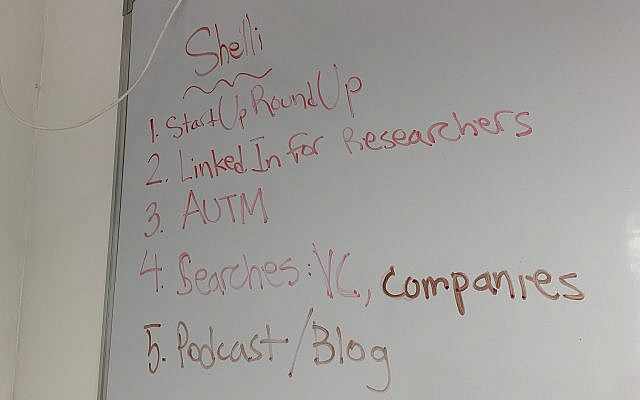 Shelli
1. StartUpRoundUp
2. LinkedIn for Researchers
3. AUTM
4. Searches: VC, companies
5. Podcast/Blog